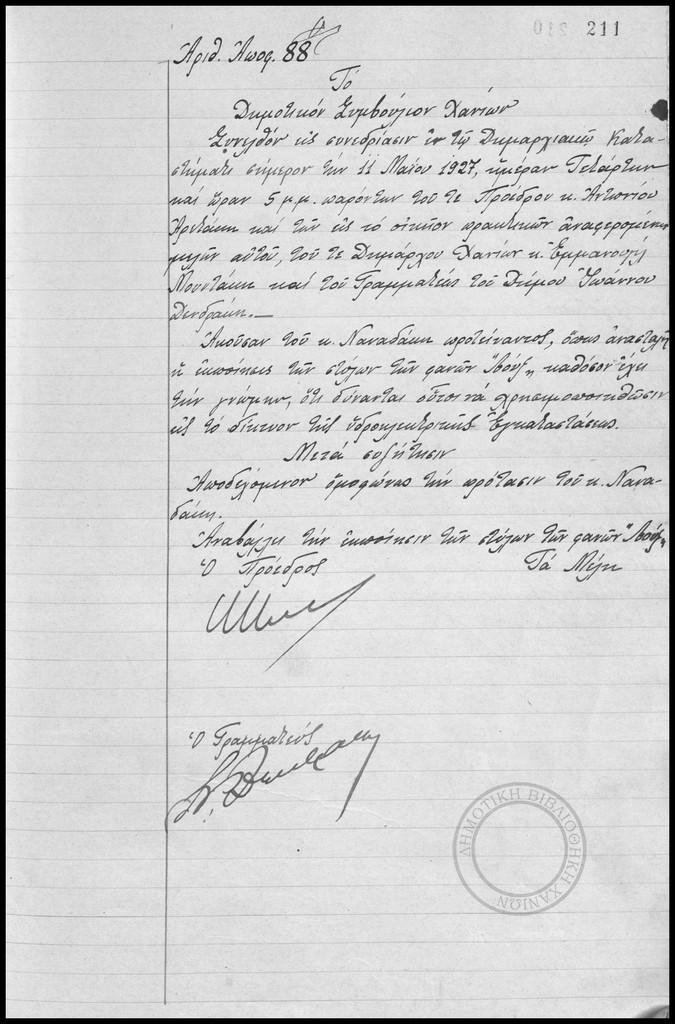 211
Ἀριθ. Ἀποφ. 88
Τό
Δημοτικόν Συμβούλιον Χανίων
Συνελθόν εἰς συνεδρίασιν ἐν τῷ Δημαρχιακῷ Κατα-
στήματι σήμερον τήν 11 Μαΐου 1927, ἡμέραν Τετάρτην
καί ὥραν 5 μ.μ. παρόντων τοῦ τε Προέδρου κ. Ἀντωνίου
καί τῶν εἰς τό οἰκεῖον πρακτικόν ἀναφερομένων
μελῶν αὐτοῦ, τοῦ τε Δημάρχου Χανίων κ. Ἐμμανουήλ
Μουντάκη καί τοῦ Γραμματέως τοῦ Δήμου Ἰωάννου
Δενδράκη.—
Ἀκοῦσαν τοῦ κ. Ναναδάκη προτείναντος, ὅπως ἀνασταλῇ
ἡ ἐκποίησις τῶν στύλων τῶν φανῶν "Λούξ" καθόσον ἔχει
τήν γνώμην, ὅτι δύνανται οὗτοι νά χρησιμοποιηθῶσιν
εἰς τό δίκτυον τῆς ὑδροηλεκτρικῆς Ἐγκαταστάσεως.
Μετά συζήτησιν
Ἀποδεχόμενον ὁμοφώνως τήν πρότασιν τοῦ κ. Νανα-
δάκη.
Ἀναβάλλει τήν ἐκποίησιν τῶν στύλων τῶν φανῶν "Λούξ"
Ὁ Πρόεδρος Τά Μέλη
Ὁ Γραμματεύς
ΔΗΜΟΤΙΚΗ ΒΙΒΛΙΟΘΗΚΗ ΧΑΝΙΩΝ